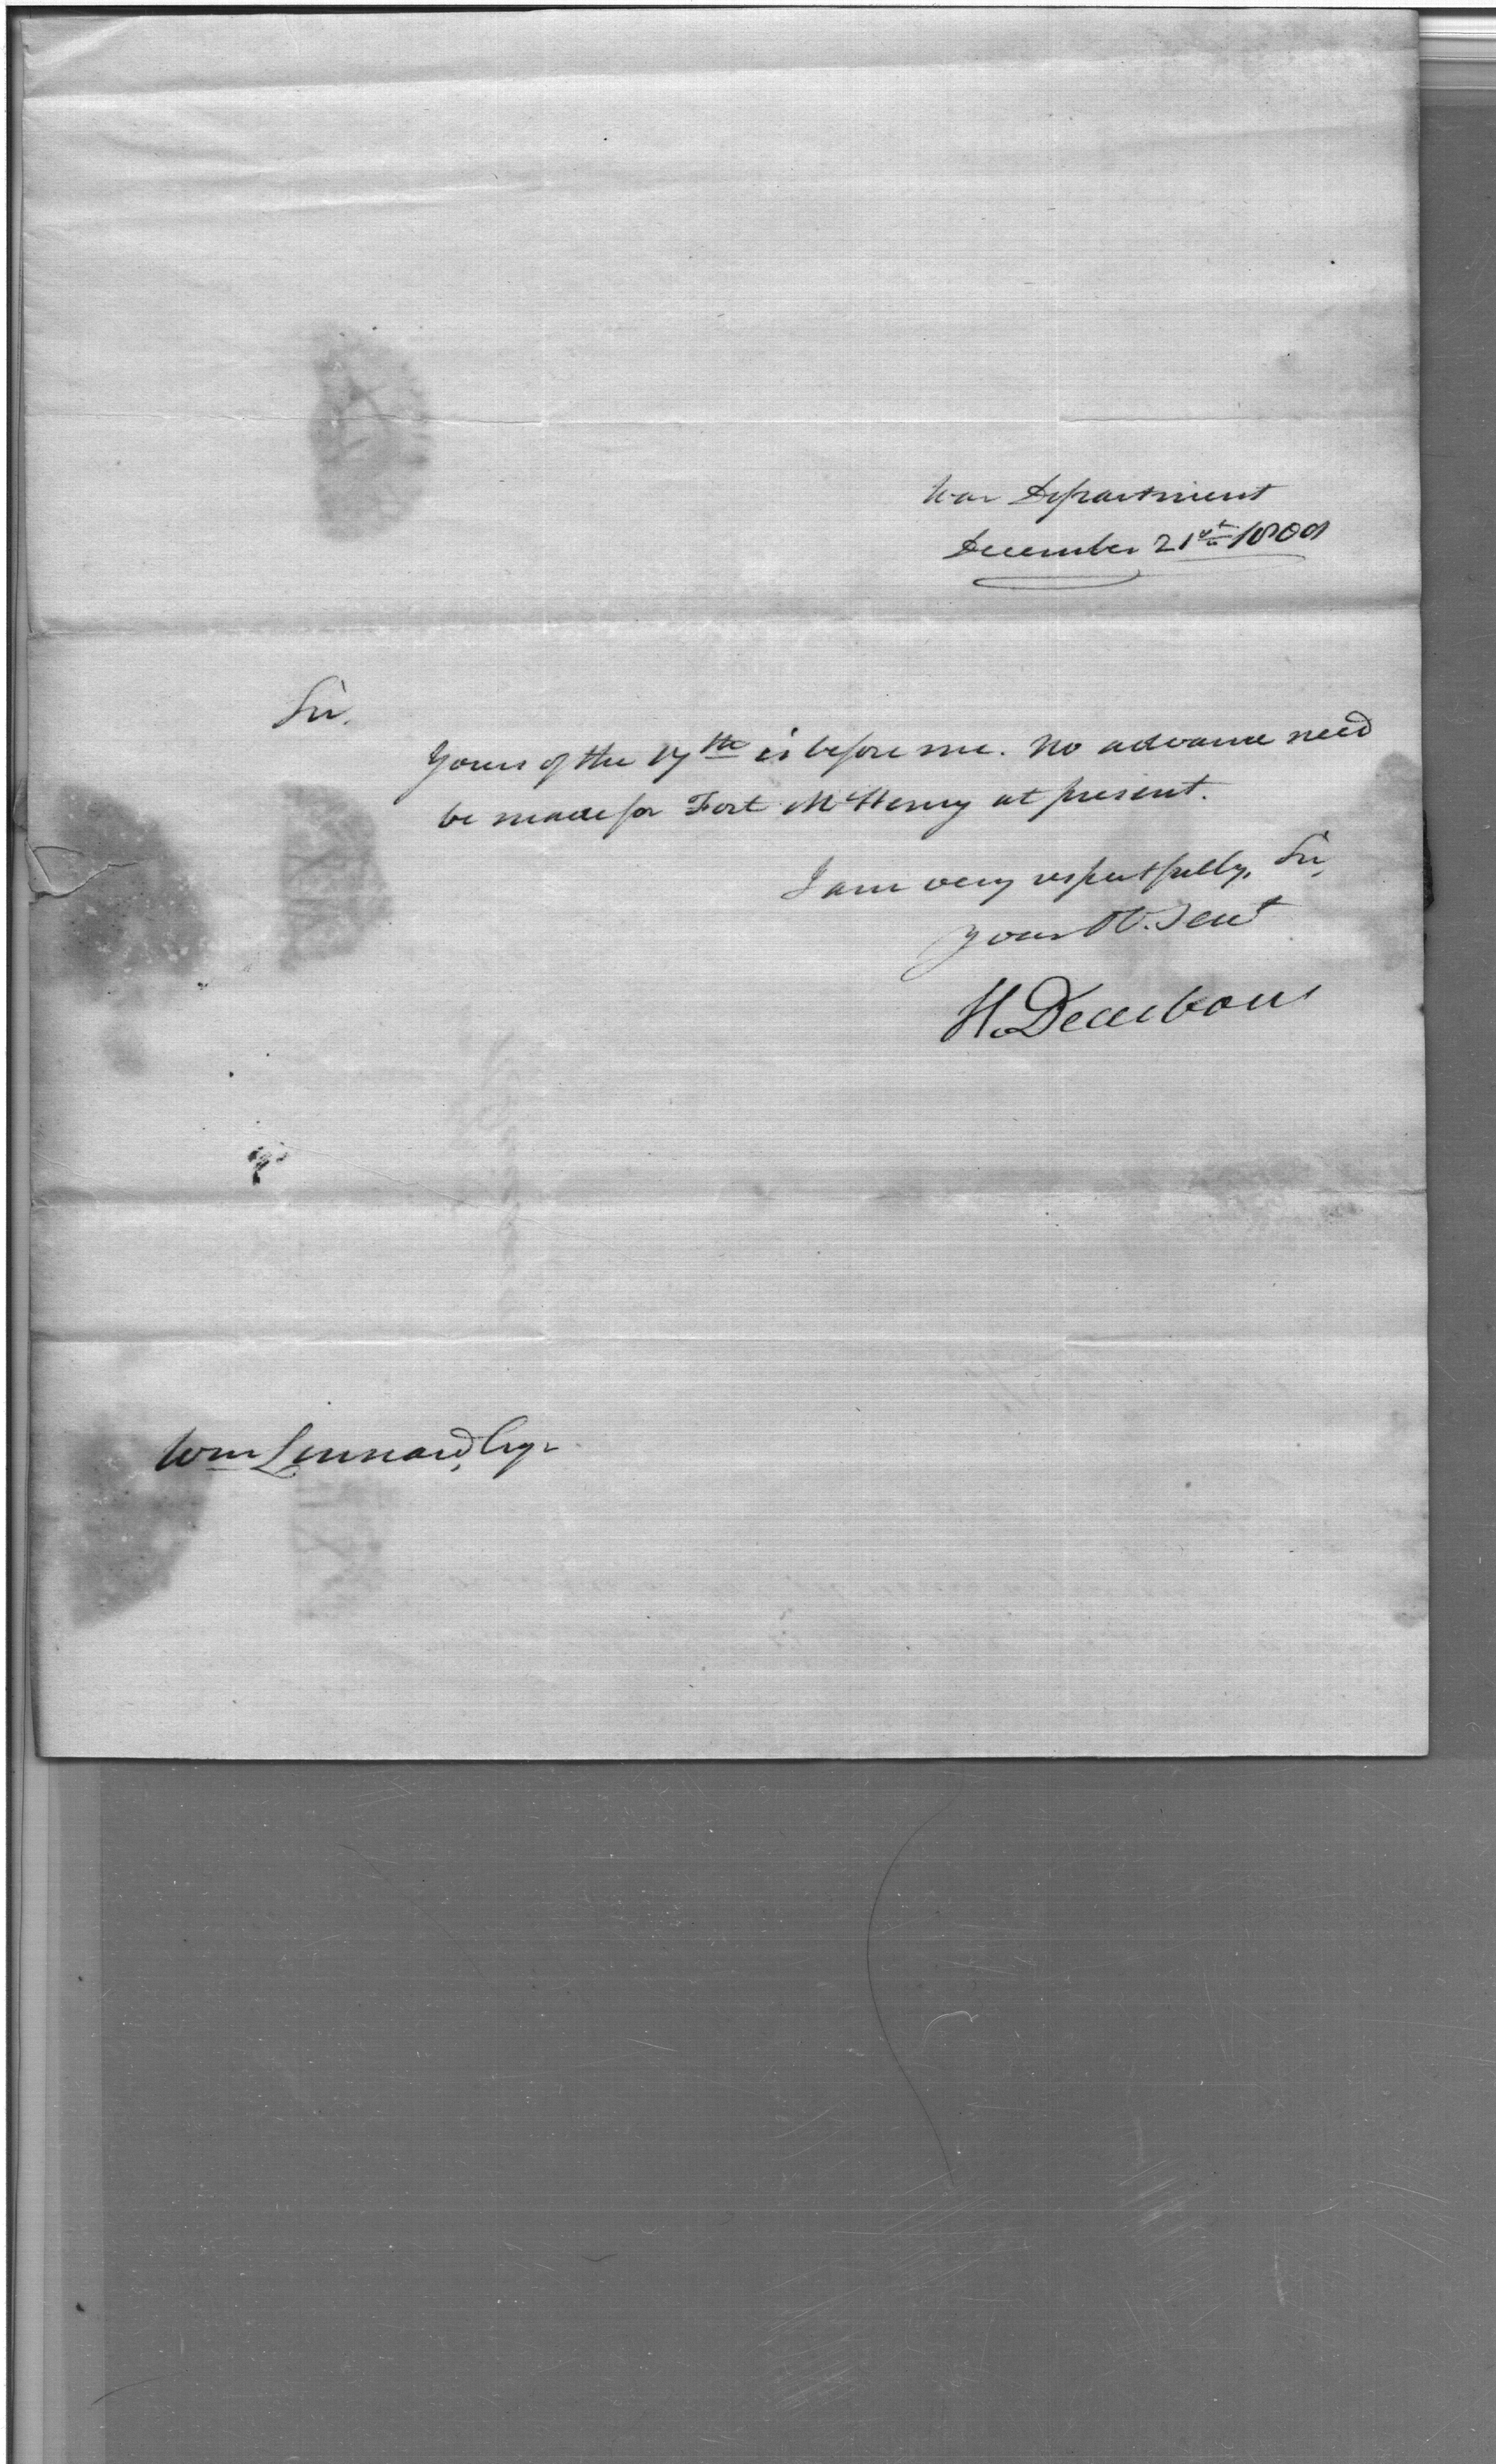 War Department
December 21st 1808
Sir,
Yours of the 17th is before me. No advance need
be made for Fort McHenry at present.
I am very respectfully, Sir,
your Ob. Sert
H. Dearborn
Wm Linnard, Esqr